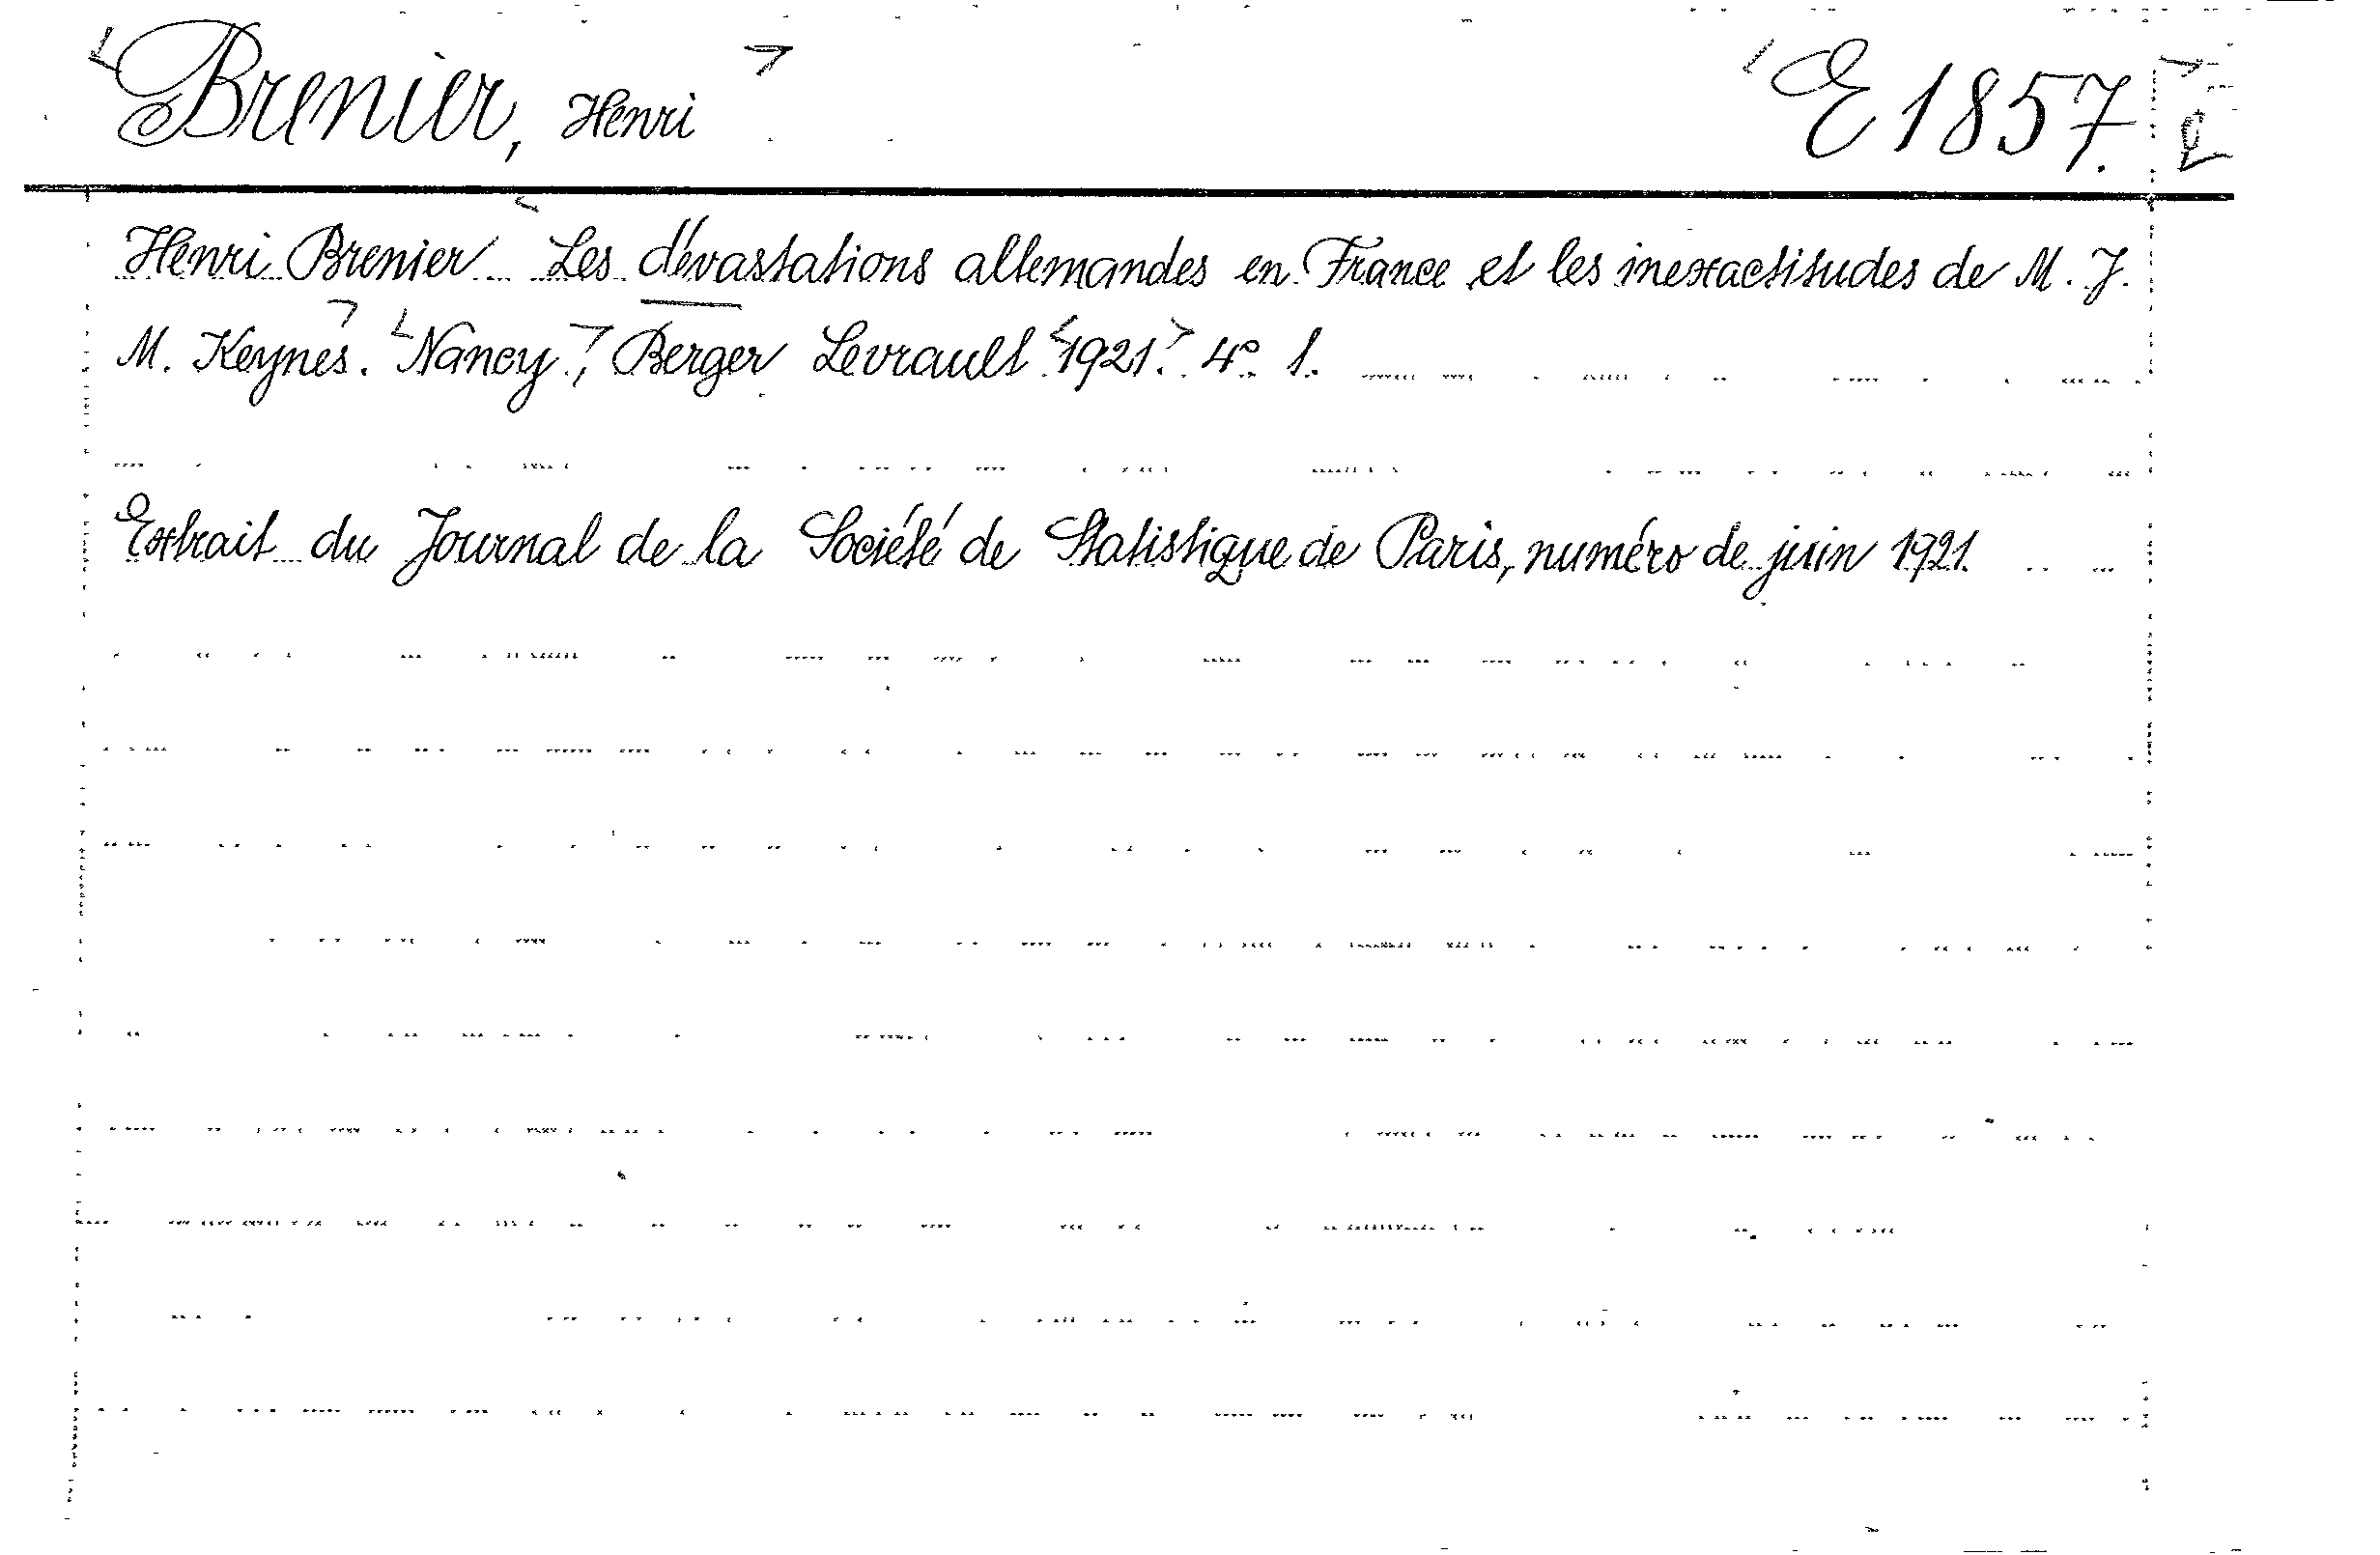 Brenier, Henri E 1857.
Henri Brenier Les dévastations allemandes en France et les inexactitudes de M. J.
M. Keynes. Nancy, Berger Levrault 1921. 4° 1.
Extrait du Journal de la Société de Statistique de Paris, numéro de juin 1921.